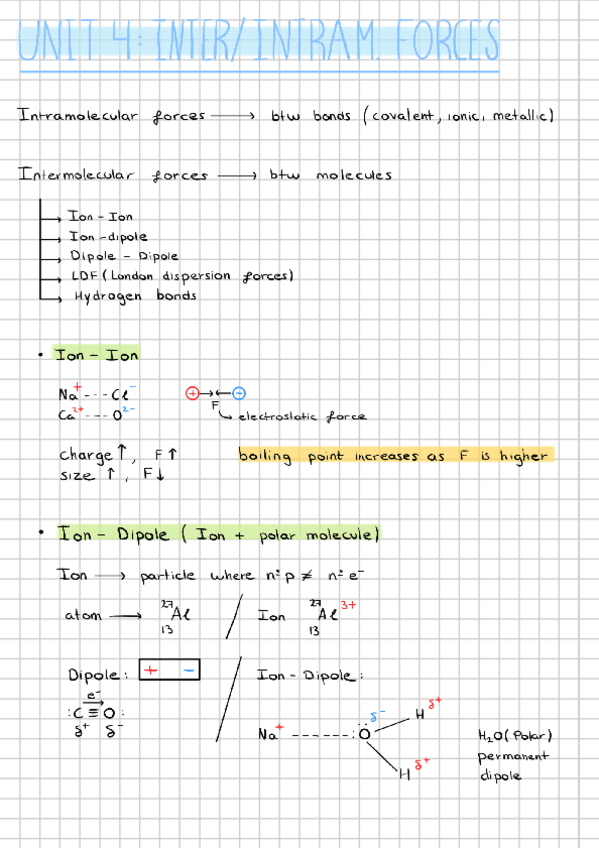 UNIT 4: INTER/INTRAM. FORCES
Intramolecular forces → btw bonds (covalent, ionic, metallic)
Intermolecular forces → btw molecules
→ Ion - Ion
→ Ion-dipole
→ Dipole - Dipole
→ LDF (London dispersion forces)
→ Hydrogen bonds
• Ion - Ion
Na⁺ --- Cl⁻ ⊕→←⊖
Ca²⁺ --- O²⁻ F → electroslatic force
charge ↑, F ↑ boiling point increases as F is higher
size ↑, F ↓
• Ion - Dipole ( Ion + polar molecule)
Ion → particle where nº p ≠ nº e⁻
atom → ²⁷₁₃Al / Ion ²⁷₁₃Al³⁺
Dipole: + − / Ion - Dipole:
e⁻
:C≡O:
δ⁺ δ⁻
Na⁺ ------- :O δ⁻ H δ⁺
H δ⁺
H₂O (Polar)
permanent
dipole